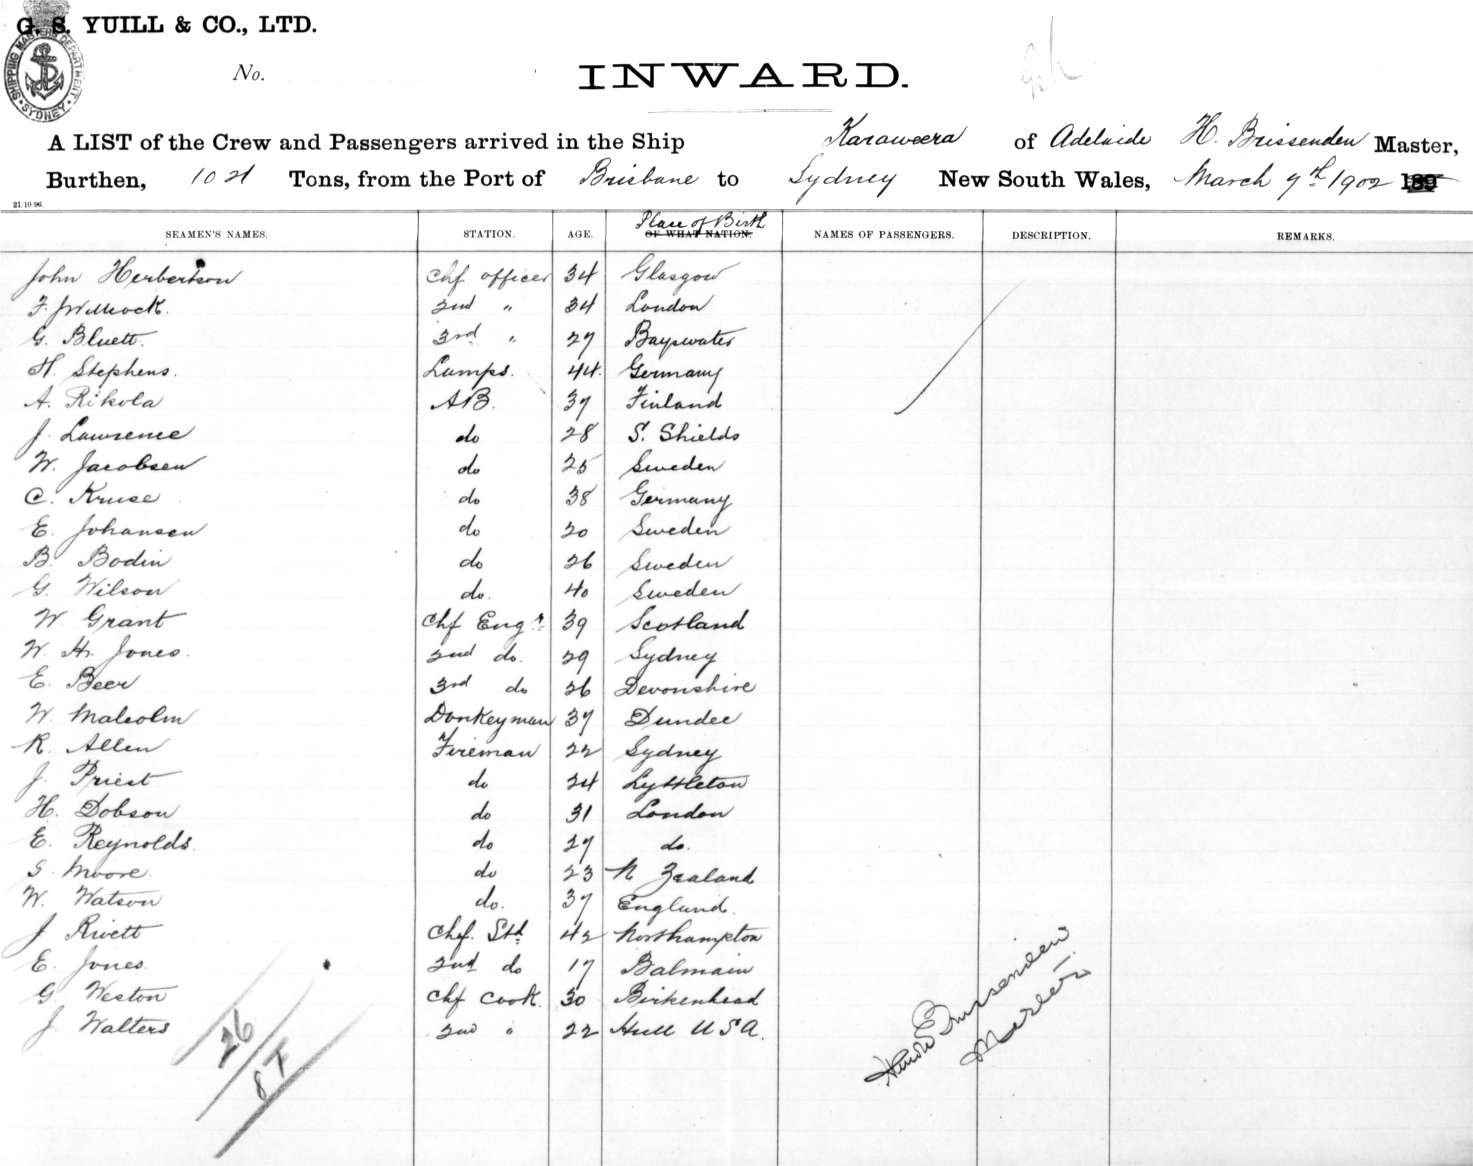 G. S. YUILL & CO., LTD.
SHIPPING MASTERS DEPARTMENT SYDNEY
No.
INWARD.
A LIST of the Crew and Passengers arrived in the Ship Karaweera of Adelaide H. Brissenden Master,
Burthen, 1021 Tons, from the Port of Brisbane to Sydney New South Wales, March 7th 1902 189
21/10/96.
Place of Birth
SEAMEN'S NAMES. STATION. AGE. OF WHAT NATION. NAMES OF PASSENGERS. DESCRIPTION. REMARKS.
John Herbertson Chf officer 34 Glasgow
F. J. Willcock. 2nd " 34 London
G. Bluett. 3rd " 27 Bayswater
H. Stephens. Lamps. 44. Germany
A. Rikola AB. 37 Finland
J. Lawrence do 28 S. Shields
W. Jacobsen do 25 Sweden
C. Kruse do 38 Germany
E. Johansen do 20 Sweden
B. Bodin do 26 Sweden
G. Wilson do. 40 Sweden
W. Grant Chf Engr 39 Scotland
W. H. Jones. 2nd do. 29 Sydney
E. Beer 3rd do 26 Devonshire
W. Malcolm Donkeyman 37 Dundee
R. Allen Fireman 22 Sydney
J. Priest do 24 Lyttleton
H. Dobson do 31 London
E. Reynolds do 27 do.
S. Moore. do 23 N Zealand
W. Watson do. 37 England.
J Rivett Chf. Std 42 Northampton
E. Jones. 2nd do 17 Balmain
G. Weston Chf Cook. 30 Birkenhead
J. Walters 2nd " 22 Hull U S A.
26
87
Harold Brissenden
Master